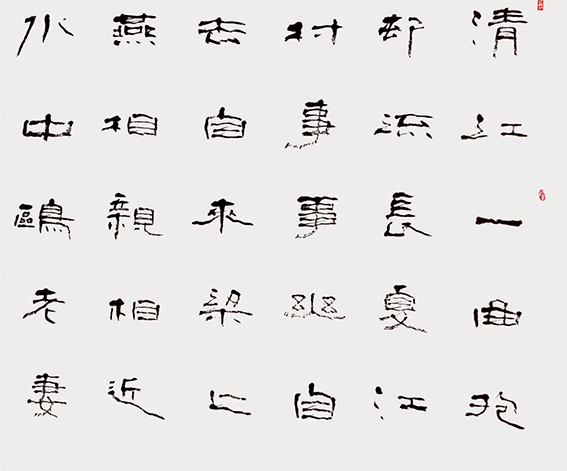 清江一曲抱
邨流長夏江
村事事幽自
去自來梁上
燕相親相近
水中鷗老妻